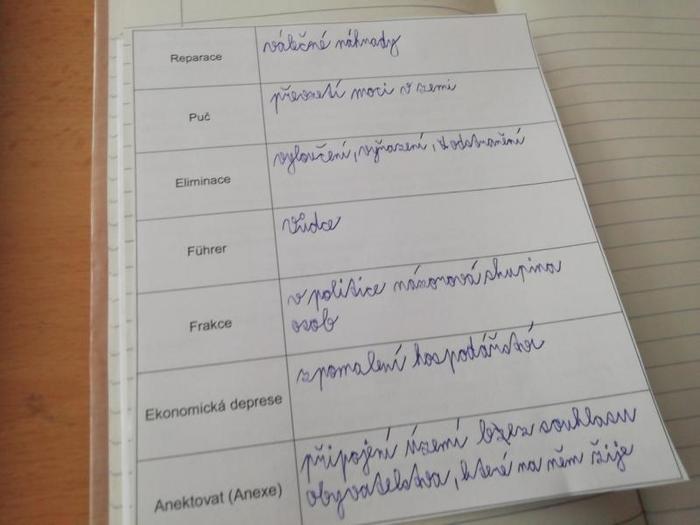 Reparace
válečné náhrady
Puč
převzetí moci v zemi
Eliminace
vyloučení, vyřazení, odstranění
Führer
vůdce
Frakce
v politice názorová skupina
osob
Ekonomická deprese
zpomalení hospodářství
Anektovat (Anexe)
připojení území bez souhlasu
obyvatelstva, které na něm žije